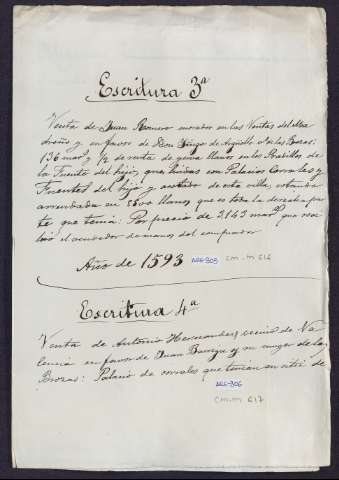 Escritura 3ª
Venta de Juan Romero morador en las Ventas del Ma
droño y en favor de Don Diego de Argüello de las Brozas:
136 mar.s y 1/2 de renta de yerva llanos en los Pradillos de
la Fuente del hijo, que lindan con Palacios Corrales y
Fuentes del hijo y costado de esta villa, estando
arrendada en 5600 llanos que es toda la derecha par
te que tenía: Por precio de 3143 mar.s que reci
bió el vendedor de manos del comprador
Año de 1593 ARG-305 CM.M 616
Escritura 4ª
Venta de Antonio Hernandez, vecino de Va
lencia en favor de Juan y su muger de las
Brozas: Palacio de corrales que tenían en sitio de
ARG-306
CM.M 617